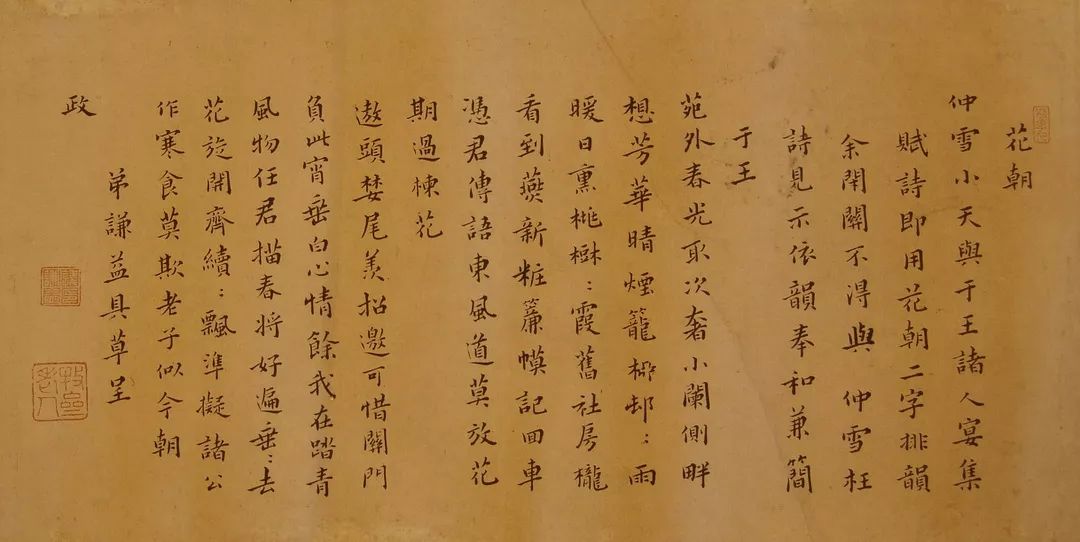 花朝
仲雪小天與于王諸人宴集
賦詩即用花朝二字排韻
余閉關不得與 仲雪枉
詩見示依韻奉和兼簡
于王
苑外春光取次奢小闌側畔
想芳華晴煙籠柳邨：雨
暖日熏桃樹：霞舊社房櫳
看到燕新粧簾幙記回車
憑君傳語東風道莫放花
期過楝花
遨頭婪尾羨招邀可惜關門
負此宵垂白心情餘我在踏青
風物任君描春將好遍垂：去
花旋開齊續：飄準擬諸公
作寒食莫欺老子似今朝
弟謙益具草呈
政